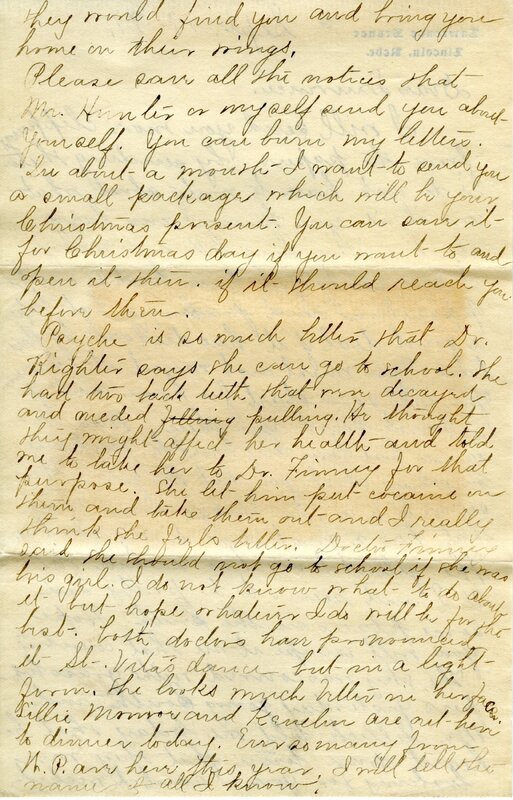 they would find you and bring you
home on their wings.
Please save all the notices that
Mr. Hunter or myself send you about
yourself. You can burn my letters.
In about a month I want to send you
a small package which will be your
Christmas present. You can save it
for Christmas day if you want to and
open it then. if it should reach you
before then.
Psyche is so much better that Dr.
Righter says she can go to school. She
had two back teeth that were decayed
and needed filling pulling. He thought
they might affect her health and told
me to take her to Dr. Finney for that
purpose. She let him put cocaine on
them and take them out and I really
think she feels better. Doctor Finney
said she should not go to school if she was
his girl. I do not know what to do about
it but hope whatever I do will be for the
best. both doctors have pronounced
it St. Vita's dance but in a light
form. She looks much better in her face.
Tillie Monroe and Kenelm are out here
to dinner today. Ever so many from
N. P. are here this year. I will tell the
name & all I know.
Lincoln, Nebr.